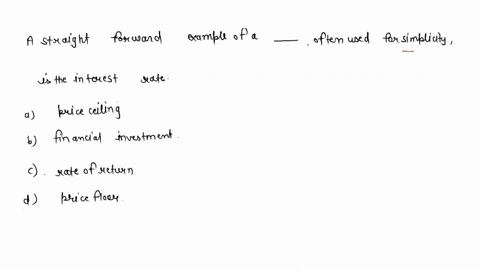 A straight forward example of a ___ , often used for simplicity,
is the interest rate.
a) price ceiling
b) financial investment.
c). rate of return
d) price floor.